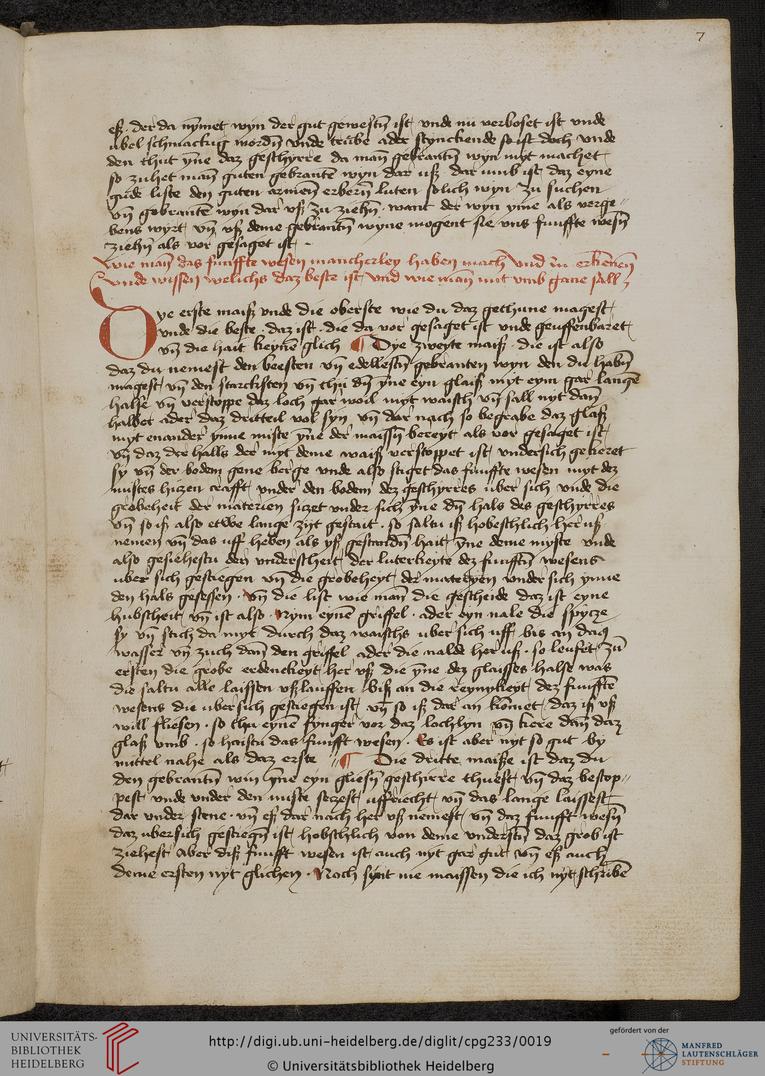 7
eß · der da nymet wyn der gut geweßn ist vnde nu verboset ist vnde
ubel schmackug wordñ vnde trube ader stynckende so ist doch vnde
den thut yne daz geschyrre da man gebrantñ wyn myt machet
so zuhet man guten gebrante wyn dar uß dar umb ist daz eyne
gude liste den guten armen erberñ luten solich wyn zu suchen
vñ gebrante wyn dar vß zu ziehñ want der wyn yme als verge
bens wyrt vñ vß deme gebrantñ wyne mogent sie vns funffte wesñ
ziehñ als vor gesaget ist
wie man das funffte wesen mancherley haben mach vnd zu erkenen
vnde wissen welichs daz beste ist vnd wie man mit vmb gane sall
Dye erste maiß vnde die oberste wie du daz gethune magest
vnde die beste daz ist die da vor gesaget ist vnde geuffenbaret
vñ die hait keynē glich ¶ Dye zweyte maiß die ist also
daz du nemest den beesten vñ edellestñ gebranten wyn den du habñ
magest vñ den starckisten vñ thu dñ yne eyn glaiß myt eym gar lange
halse vñ verstoppe daz loch gar woil myt waisch vñ sall nyt dan
halber ader daz dritteil vol syn vñ dar nach so begrabe daz glaß
myt enander ynne miste yne der maissñ bereyt als vor gesaget ist
vñ daz der halls der myt deme waiß verstoppet ist vndersich gekeret
sy vñ der bodem gene berge vnde also stiget das funffte wesen myt dez
mistes hitzen crafft vnder den bodem dez geschyrres uber sich vnde die
grobeheit der materien sitzet vnder sich yne dñ hals des geschyrres
vñ so iß also etwe lange zyt gestait so saltu iß hobeschlich her uß
nemen vñ das uff heben als yß gestandñ hait yne deme myste vnde
also gesiehestu den vnderscheit der luterkeyte dez funfftñ wesens
uber sich gestiegen vñ die grobeheyt der materyen vnder sich ynne
den hals gesessen vñ die list wie man die gescheide daz ist eyne
hubscheit vñ ist also Nym eynē griffel ader eyn nale die spycze
sy vñ stich da myt durch daz waischs uber sich uff bis an daz
wasser vñ zuch dan den griffel ader die nalde her uß so leufet zu
ersten die grobe erdenckeyt her vß die yne dez glaisses halse was
die saltu alle laissen vßlauffen biß an die reynykeyt dez funffte
wesens die ubersich gestiegen ist vñ so iß dar an komet daz iß vß
will fliesen so thu eynē fynger vor daz lochlyn vñ kere dan daz
glaß vmb so haistu das funfft wesen Es ist aber nyt so gut by
mittel nahe als daz erste ¶ Die dritte maiße ist daz du
den gebrantñ win yne eyn gliesñ geschirre thuest vñ daz bestop
pest vnde vnder den miste setzest uffriecht vñ das lange laissest
dar vnder stene vñ eß dar nach her vß nemest vñ daz funfft wesñ
daz ubersich gestiegñ ist hobschlich von deme vnderstñ daz grob ist
ziehest Aber diß funfft wesen ist auch nyt gar gut vñ eß auch
deme ersten nyt glichen Noch synt me maissen die ich nyt schribē
UNIVERSITÄTS-
BIBLIOTHEK
HEIDELBERG
http://digi.ub.uni-heidelberg.de/diglit/cpg233/0019
© Universitätsbibliothek Heidelberg
gefördert von der
MANFRED
LAUTENSCHLÄGER
STIFTUNG